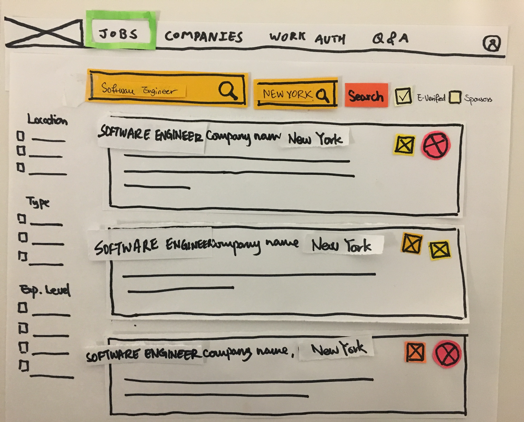 JOBS COMPANIES WORK AUTH Q&A
Software Engineer NEW YORK Search E-Verified Sponsors
Location
SOFTWARE ENGINEER Company name New York
Type
SOFTWARE ENGINEER Company name New York
Exp. Level
SOFTWARE ENGINEER Company name, New York